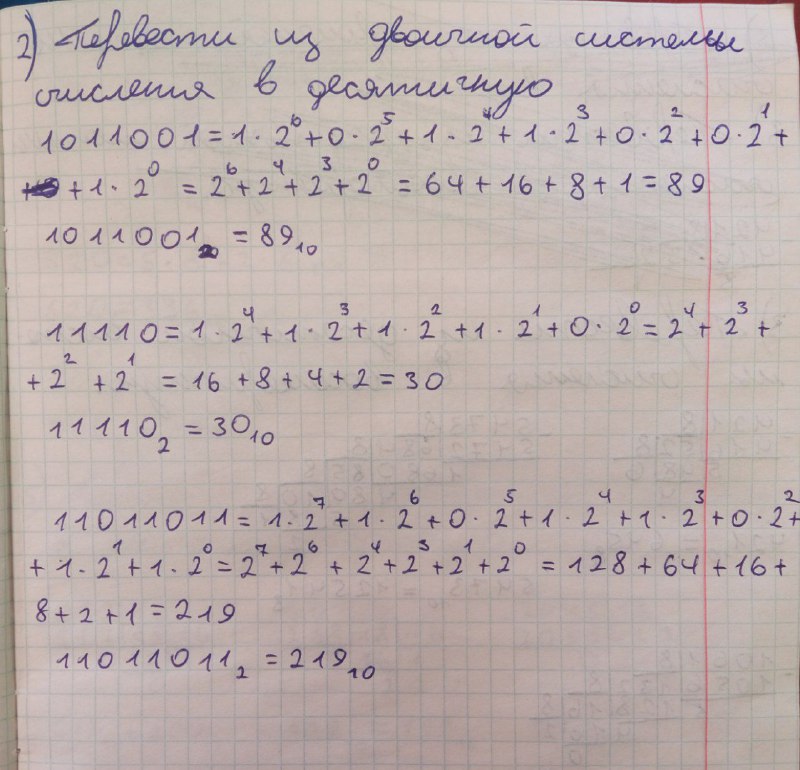 2) Перевести из двоичной системы
числения в десятичную
1011001 = 1 · 2⁶ + 0 · 2⁵ + 1 · 2⁴ + 1 · 2³ + 0 · 2² + 0 · 2¹ +
+ 1 · 2⁰ = 2⁶ + 2⁴ + 2³ + 2⁰ = 64 + 16 + 8 + 1 = 89
1011001₂ = 89₁₀
11110 = 1 · 2⁴ + 1 · 2³ + 1 · 2² + 1 · 2¹ + 0 · 2⁰ = 2⁴ + 2³ +
+ 2² + 2¹ = 16 + 8 + 4 + 2 = 30
11110₂ = 30₁₀
11011011 = 1 · 2⁷ + 1 · 2⁶ + 0 · 2⁵ + 1 · 2⁴ + 1 · 2³ + 0 · 2² +
+ 1 · 2¹ + 1 · 2⁰ = 2⁷ + 2⁶ + 2⁴ + 2³ + 2¹ + 2⁰ = 128 + 64 + 16 +
8 + 2 + 1 = 219
11011011₂ = 219₁₀